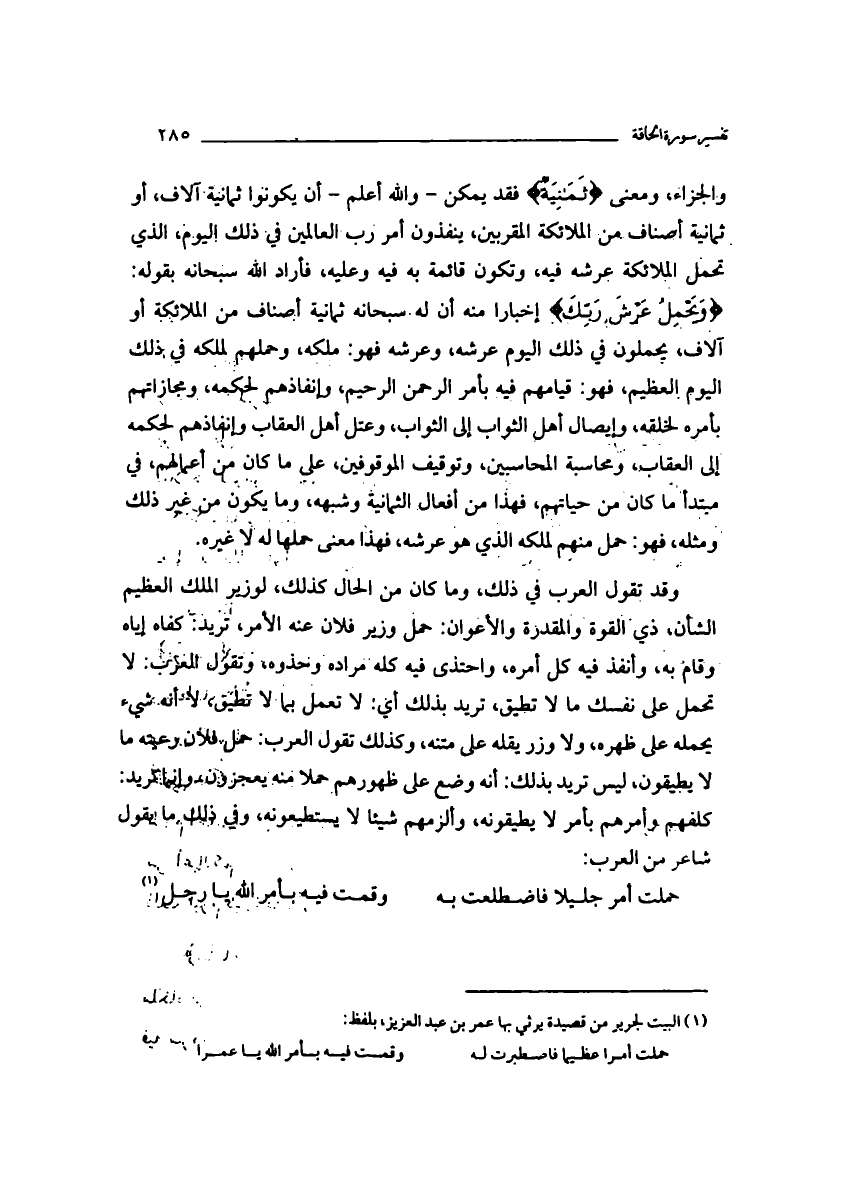 تفسير سورة الحاقة ٢٨٥
والجزاء، ومعنى ﴿ثَمَـٰنِيَةٌ﴾ فقد يمكن – والله أعلم – أن يكونوا ثمانية آلاف، أو
ثمانية أصناف من الملائكة المقربين، ينفذون أمر رب العالمين في ذلك اليوم، الذي
تحمل الملائكة عرشه فيه، وتكون قائمة به فيه وعليه، فأراد الله سبحانه بقوله:
﴿وَيَحْمِلُ عَرْشَ رَبِّكَ﴾ إخبارا منه أن له سبحانه ثمانية أصناف من الملائكة أو
آلاف، يحملون في ذلك اليوم عرشه، وعرشه فهو: ملكه، وحملهم لملكه في ذلك
اليوم العظيم، فهو: قيامهم فيه بأمر الرحمن الرحيم، وإنفاذهم لحكمه، ومجازاتهم
بأمره لخلقه، وإيصال أهل الثواب إلى الثواب، وعتل أهل العقاب وإنفاذهم لحكمه
إلى العقاب، ومحاسبة المحاسبين، وتوقيف الموقوفين، على ما كان من أعمالهم، في
مبتدأ ما كان من حياتهم، فهذا من أفعال الثمانية وشبهه، وما يكون من غير ذلك
ومثله، فهو: حمل منهم لملكه الذي هو عرشه، فهذا معنى حملها له لا غيره.
وقد تقول العرب في ذلك، وما كان من الحال كذلك، لوزير الملك العظيم
الشأن، ذي القوة والمقدرة والأعوان: حمل وزير فلان عنه الأمر، تريد: كفاه إياه
وقام به، وأنفذ فيه كل أمره، واحتذى فيه كله مراده وحذوه، وتقول العرب: لا
تحمل على نفسك ما لا تطيق، تريد بذلك أي: لا تعمل بما لا تطيق، لا أنه شيء
يحمله على ظهره، ولا وزر يقله على متنه، وكذلك تقول العرب: حمل فلان رعيته ما
لا يطيقون، ليس تريد بذلك: أنه وضع على ظهورهم حملا منه يعجزون، وإنما تريد:
كلفهم وأمرهم بأمر لا يطيقونه، وألزمهم شيئا لا يستطيعونه، وفي ذلك ما يقول
شاعر من العرب:
حملت أمر جليلا فاضطلعت به وقمت فيه بأمر الله يا رجل (١)
(١) البيت لجرير من قصيدة يرثي بها عمر بن عبد العزيز، بلفظ:
حملت أمرا عظيما فاصطبرت له وقمت فيه بأمر الله يا عمرا